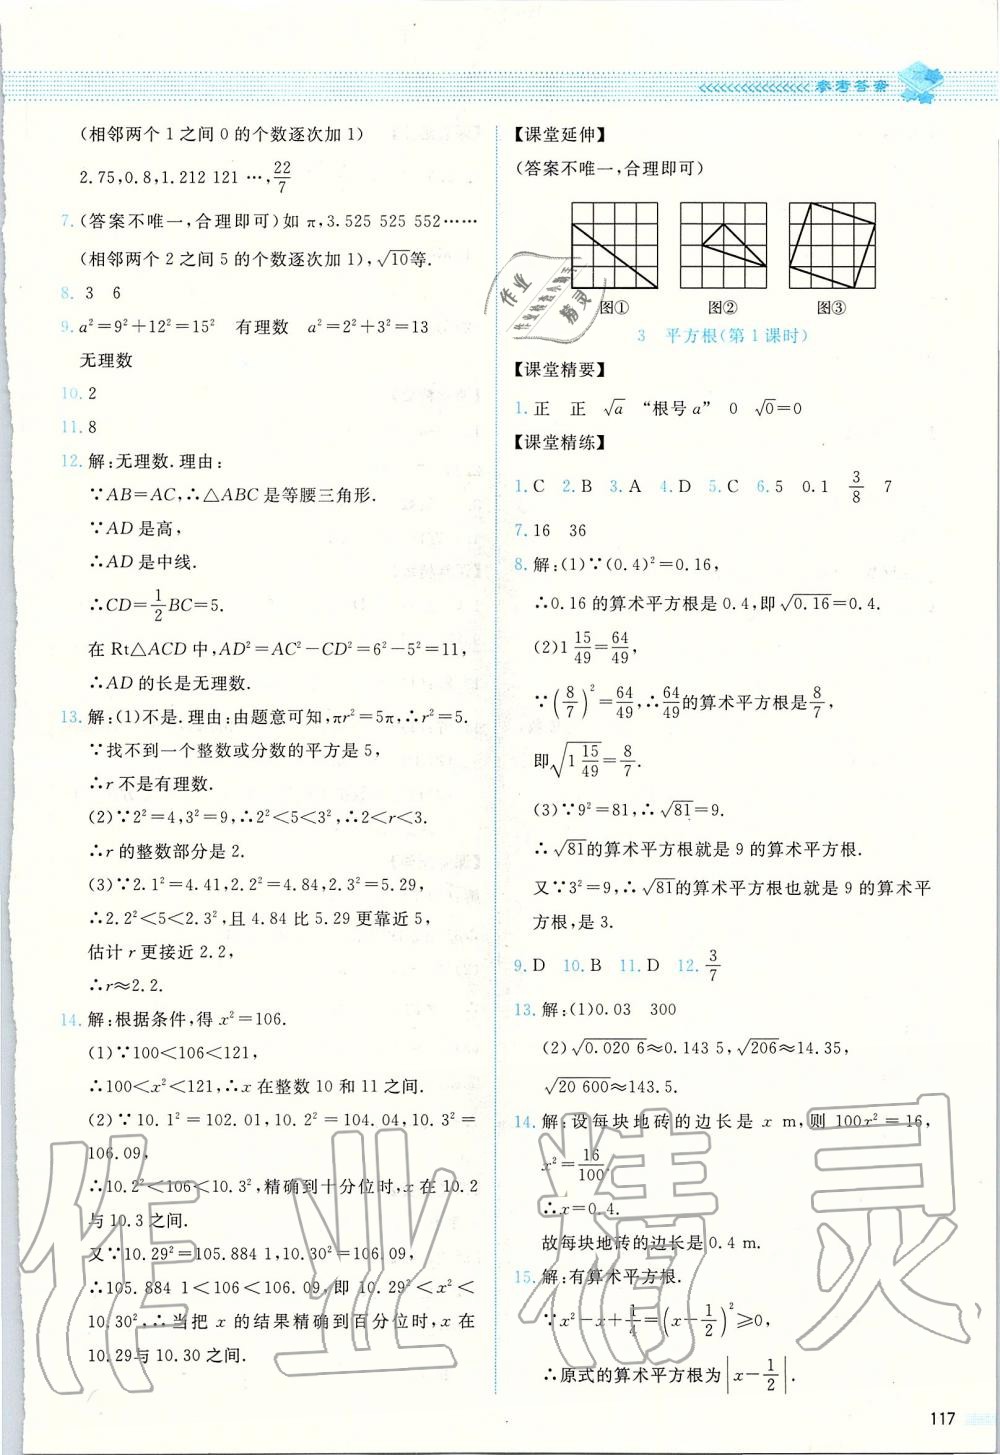 参考答案
(相邻两个 1 之间 0 的个数逐次加 1)
2.75,0.8,1.212 121 …,22/7
7.(答案不唯一,合理即可)如 π,3.525 525 552……
(相邻两个 2 之间 5 的个数逐次加 1),√10等.
8. 3 6
9. a²=9²+12²=15² 有理数 a²=2²+3²=13
无理数
10. 2
11. 8
12. 解:无理数.理由:
∵AB=AC,∴△ABC 是等腰三角形.
∵AD 是高,
∴AD 是中线.
∴CD=1/2BC=5.
在 Rt△ACD 中,AD²=AC²-CD²=6²-5²=11,
∴AD 的长是无理数.
13. 解:(1)不是.理由:由题意可知,πr²=5π,∴r²=5.
∵找不到一个整数或分数的平方是 5,
∴r 不是有理数.
(2)∵2²=4,3²=9,∴2²<5<3²,∴2<r<3.
∴r 的整数部分是 2.
(3)∵2.1²=4.41,2.2²=4.84,2.3²=5.29,
∴2.2²<5<2.3²,且 4.84 比 5.29 更靠近 5,
估计 r 更接近 2.2,
∴r≈2.2.
14. 解:根据条件,得 x²=106.
(1)∵100<106<121,
∴100<x²<121,∴x 在整数 10 和 11 之间.
(2)∵10.1²=102.01,10.2²=104.04,10.3²=
106.09,
∴10.2²<106<10.3²,精确到十分位时,x 在 10.2
与 10.3 之间.
又∵10.29²=105.884 1,10.30²=106.09,
∴105.884 1<106<106.09,即 10.29²<x²<
10.30²,∴当把 x 的结果精确到百分位时,x 在
10.29 与 10.30 之间.
【课堂延伸】
(答案不唯一,合理即可)
图① 图② 图③
3 平方根(第 1 课时)
【课堂精要】
1. 正 正 √a “根号 a” 0 √0=0
【课堂精练】
1. C 2. B 3. A 4. D 5. C 6. 5 0.1 3/8 7
7. 16 36
8. 解:(1)∵(0.4)²=0.16,
∴0.16 的算术平方根是 0.4,即√0.16=0.4.
(2)1 15/49=64/49,
∵(8/7)²=64/49,∴64/49的算术平方根是8/7,
即√(1 15/49)=8/7.
(3)∵9²=81,∴√81=9.
∴√81的算术平方根就是 9 的算术平方根.
又∵3²=9,∴√81的算术平方根也就是 9 的算术平
方根,是 3.
9. D 10. B 11. D 12. 3/7
13. 解:(1)0.03 300
(2)√0.020 6≈0.143 5,√206≈14.35,
√20 600≈143.5.
14. 解:设每块地砖的边长是 x m,则 100x²=16,
x²=16/100.
∴x=0.4.
故每块地砖的边长是 0.4 m.
15. 解:有算术平方根.
∵x²-x+1/4=(x-1/2)²≥0,
∴原式的算术平方根为|x-1/2|.
作业精灵
117